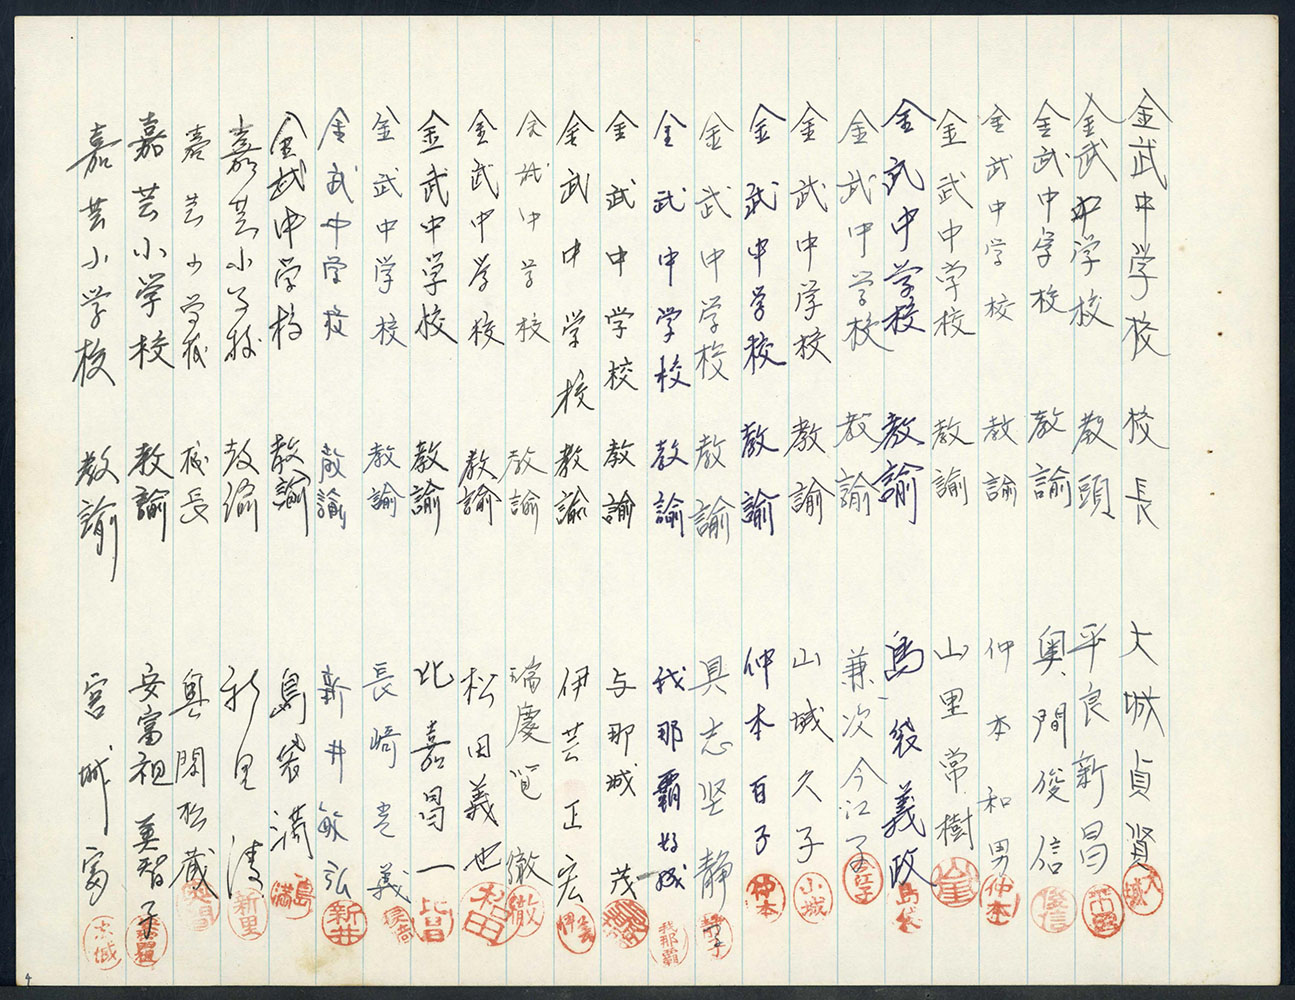 金武中学校 校長 大城貞賢
金武中学校 教頭 平良新昌
金武中学校 教諭 奥間俊信
金武中学校 教諭 仲本和男
金武中学校 教諭 山里常樹
金武中学校 教諭 島袋義政
金武中学校 教諭 兼次今江子
金武中学校 教諭 山城久子
金武中学校 教諭 仲本百子
金武中学校 教諭 具志堅静
金武中学校 教諭 我那覇
金武中学校 教諭 与那城茂
金武中学校 教諭 伊芸正宏
金武中学校 教諭 瑞慶覧徹
金武中学校 教諭 松田義也
金武中学校 教諭 比嘉昌一
金武中学校 教諭 長崎義
金武中学校 教諭 新井敏弘
金武中学校 教諭 島袋満
嘉芸小学校 教諭 新里清
嘉芸小学校 校長 奥間松蔵
嘉芸小学校 教諭 安富祖美智子
嘉芸小学校 教諭 宮城富
大城
俊信
仲本
島袋
仲本
静子
我那覇
徹
松田
新井
島満
新里
奥間
安富祖
4